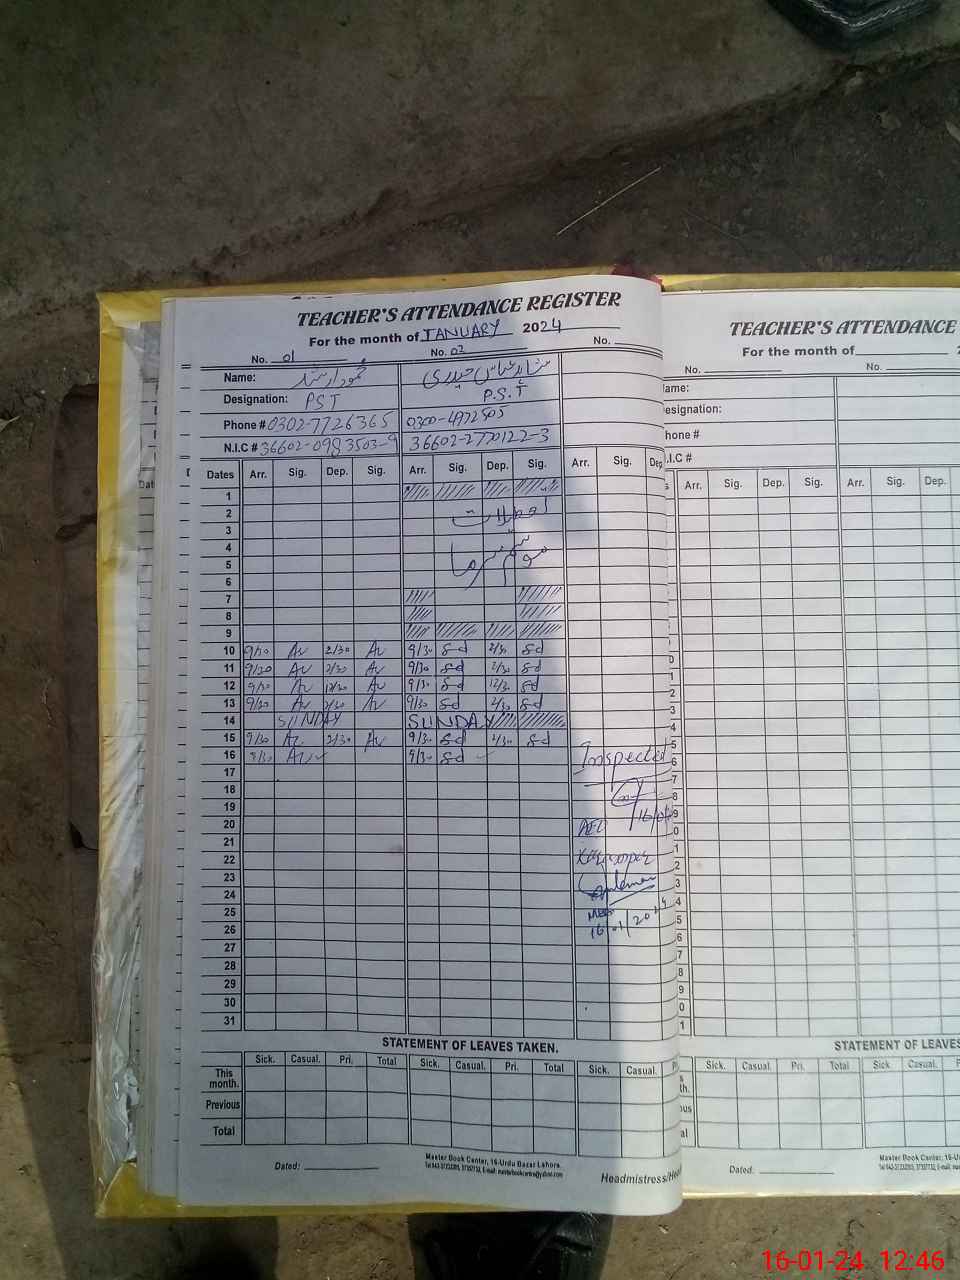 TEACHER'S ATTENDANCE REGISTER
For the month of JANUARY 2024
No. 01 No. 02 No.
Name: محمود ارشد شاہد عباس حیدری
Designation: PST P.S.T
Phone # 0302-7726365 0300-4972505
N.I.C # 36602-0983503-9 36602-2770122-3
Dates Arr. Sig. Dep. Sig. Arr. Sig. Dep. Sig. Arr. Sig. Dep
1
2 تعطیلات
3
4
5 موسم سرما
6
7
8
9
10 9/30 2/30 9/30 2/30
11 9/30 2/30 9/30 2/30
12 9/30 12/30 9/30 12/30
13 9/30 2/30 9/30 2/30
14 SUNDAY SUNDAY
15 9/30 2/30 9/30 2/30
16 9/30 9/30
Inspected
17
18
19 16/01
20 AEO
21
22
23
24
25 MEA
26 16/01/2024
27
28
29
30
31
STATEMENT OF LEAVES TAKEN.
Sick. Casual. Pri. Total Sick. Casual. Pri. Total Sick. Casual.
This month.
Previous
Total
Dated:
Master Book Center, 16-Urdu Bazar Lahore.
Headmistress/Hea
TEACHER'S ATTENDANCE
For the month of
No. No.
ame:
esignation:
hone #
.I.C #
Arr. Sig. Dep. Sig. Arr. Sig. Dep.
STATEMENT OF LEAVES
Sick. Casual. Pri. Total Sick. Casual.
Dated:
Master Book Center, 16-U
16-01-24 12:46